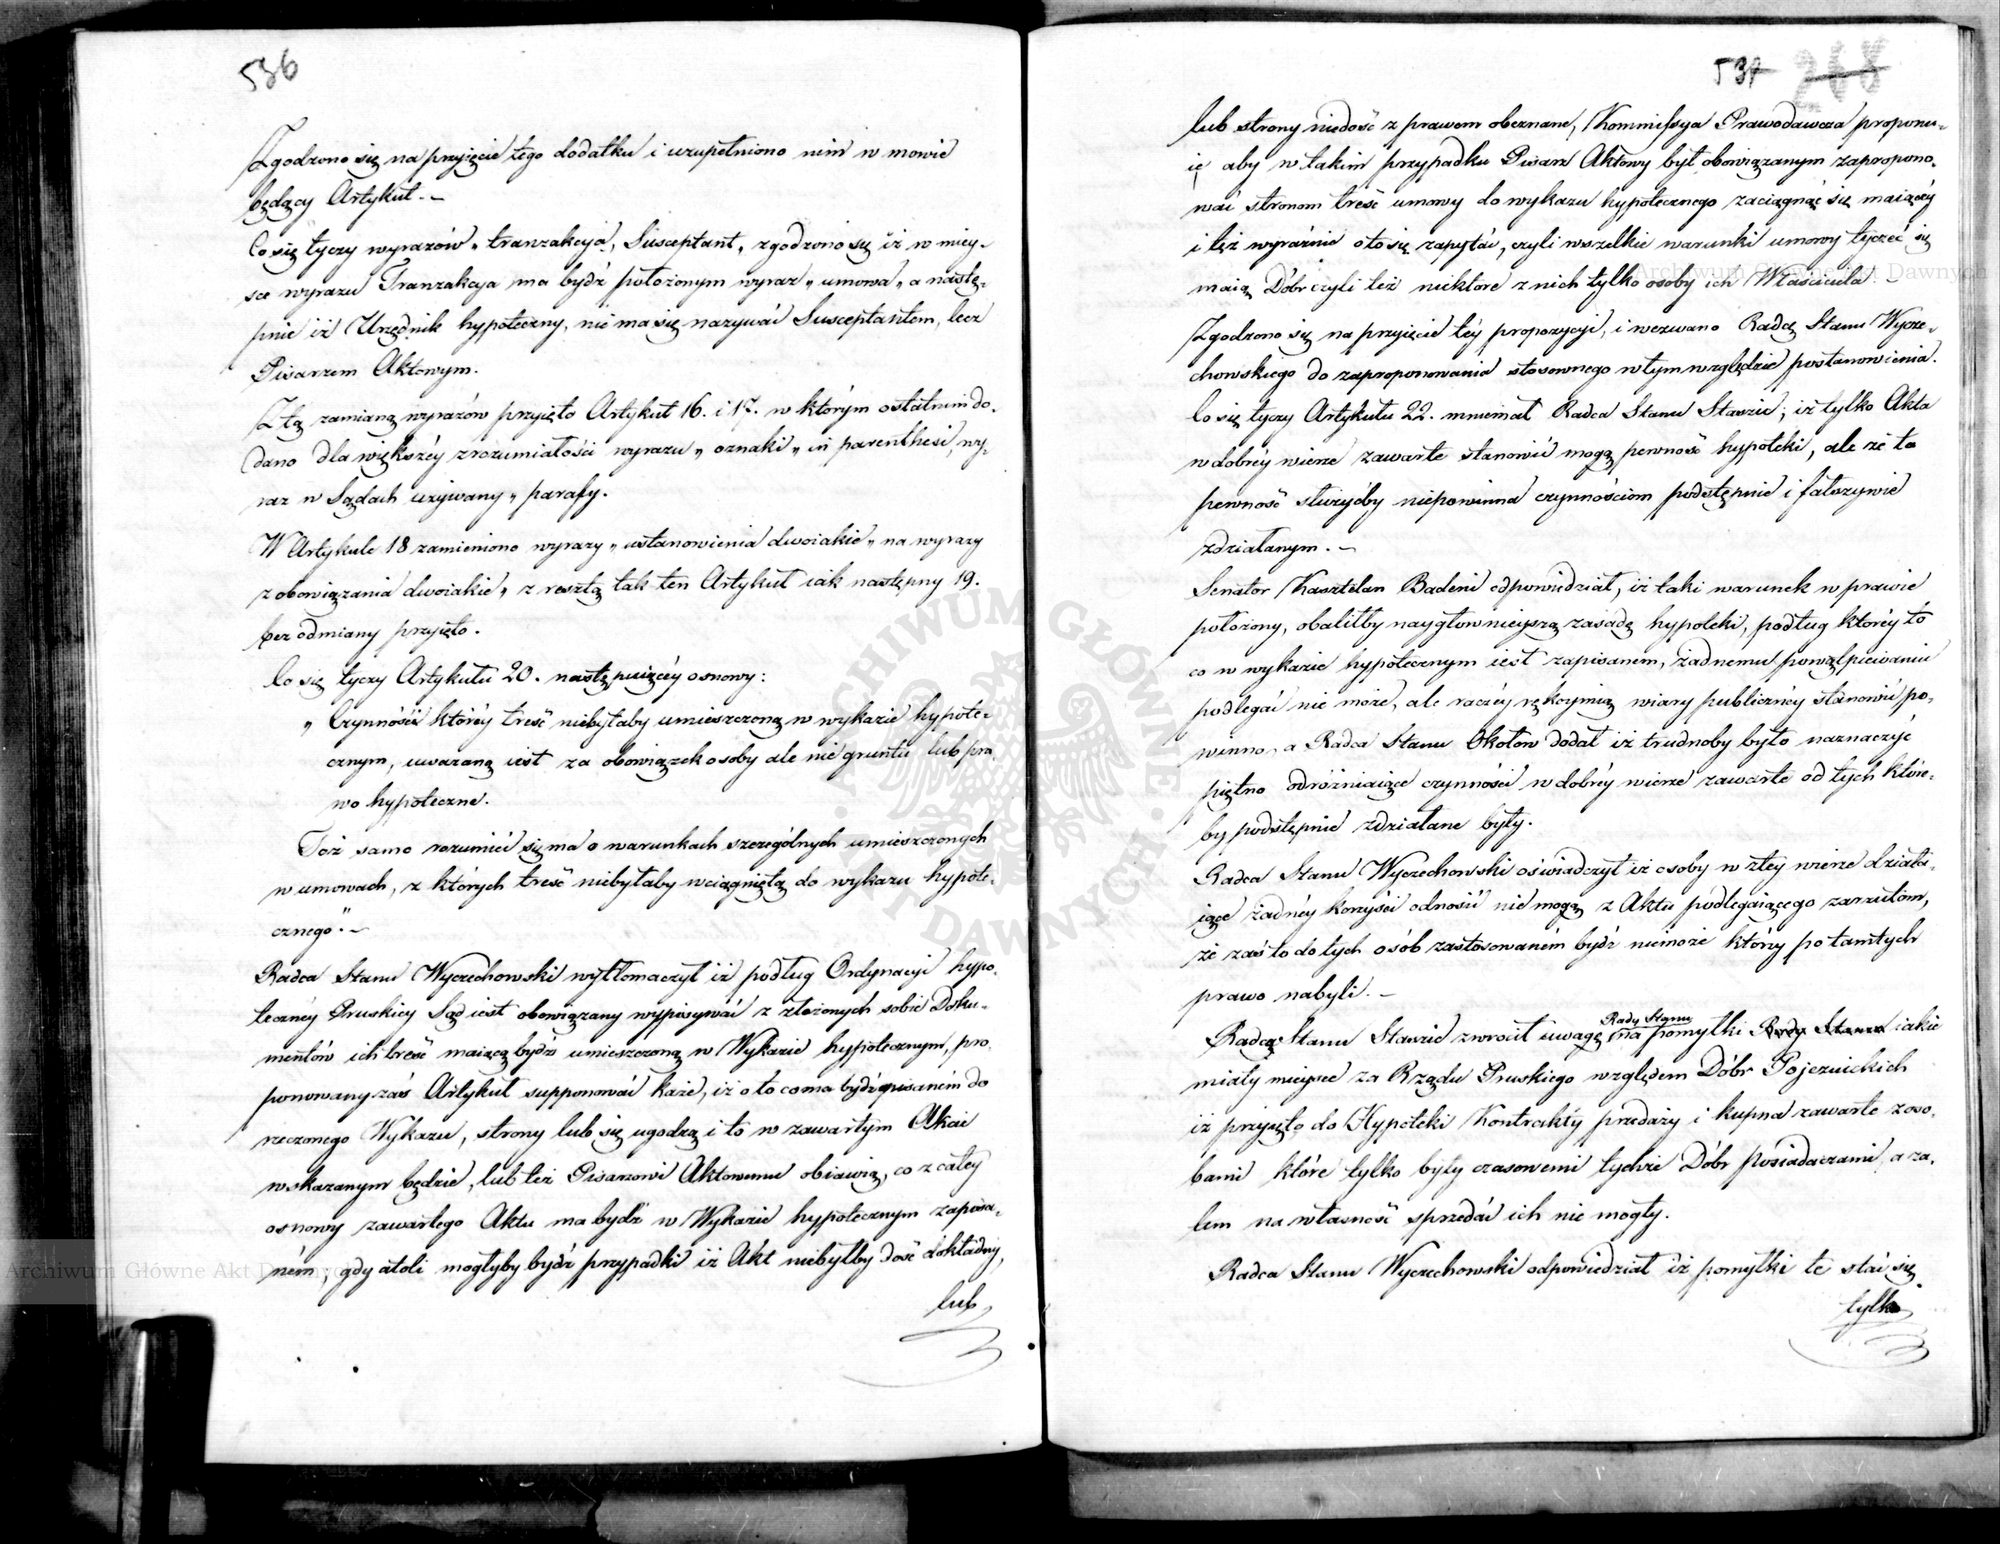 536
Zgodzono się na przyjęcie tego dodatku i uzupełniono nim w mowie
będący Artykuł. –
Co się tyczy wyrazów „ tranzakcya, Susceptant „ zgodzono się iż w miey-
sce wyrazu Tranzakcya ma bydź położonym wyraz „ umowa „ a nastę-
pnie iż Urzędnik hypoteczny, nie ma się nazywać Susceptantem, lecz
Pisarzem Aktowym.
Z tą zamianą wyrazów przyięto Artykuł 16. i 17. w którym ostatnim do-
dano dla większéy zrozumiałości wyrazu „ oznaki „ in parenthesi, wy-
raz w Sądach używany „ parafy.
W Artykule 18 zamieniono wyrazy „ ustanowienia dwoiakie „ na wyrazy
zobowiązania dwoiakie „ z resztą tak ten Artykuł iak następny 19.
bez odmiany przyięto.
Co się tyczy Artykułu 20. następuiącéy osnowy:
„ Czynność któréy treść niebyłaby umieszczoną w wykazie hypote-
cznym, uważaną iest za obowiązek osoby ale nie gruntu lub pra
wo hypoteczne.
Toż samo rozumieć się ma o warunkach szczególnych umieszczonych
w umowach, z których treść niebyłaby wciągniętą do wykazu hypote-
cznego". –
Radca Stanu Wyczechowski wytłomaczył iż podług Ordynacyi hypo-
teczney Pruskiey Sąd iest obowiązany wypisywać z złożonych sobie Doku-
mentów ich treść maiącą bydź umieszczoną w Wykazie hypotecznym, pro-
ponowany zaś Artykuł supponować każe, iż o to co ma bydź wpisaném do
rzeczonego Wykazu, strony lub się ugodzą i to w zawartym Akcie
wskazanym będzie, lub też Pisarzowi Aktowemu obiawią, co z całey
osnowy zawartego Aktu ma bydź w Wykazie hypotecznym zapisa-
ném, gdy atoli mogłyby bydź przypadki iż Akt niebyłby dość dokładny,
lub
537 268
lub strony niedość z prawem obeznane, Kommissya Prawodawcza proponu-
ie aby w takim przypadku Pisarz Aktowy był obowiązanym zapropono-
wać stronom treść umowy do wykazu hypotecznego zaciągnąć się maiącéy
i też wyraźnie o to się zapytać, czyli wszelkie warunki umowy tyczeć się
maią Dóbr czyli też niektóre z nich tylko osoby ich Właściciela. –
Zgodzono się na przyięcie téy propozycyi, i wezwano Radcę Stanu Wycze-
chowskiego do zaproponowania stosownego w tym względzie postanowienia.
Co się tyczy Artykułu 22. mniemał Radca Stanu Staszic, iż tylko Akta
w dobréy wierze zawarte stanowić mogą pewność hypoteki, ale że ta
pewność służyćby niepowinna czynnościom podstępnie i fałszywie
zdziałanym. –
Senator Kasztelan Badeni odpowiedział, iż taki warunek w prawie
położony, obaliłby naygłownieyszą zasadę hypoteki, podług któréy to
co w wykazie hypotecznym iest zapisanem, żadnemu powątpiewaniu
podlegać nie może, ale raczéy rękoymią wiary publicznéy stanowić po-
winno, a Radca Stanu Okołow dodał iż trudnoby było naznaczyć
piętno odróżniaiące czynności w dobréy wierze zawarte od tych któré-
by podstępnie zdziałane były.
Radca Stanu Wyczechowski oświadczył iż osoby w złéy wierze działa-
iące żadnéy korzyści odnosić nie mogą z Aktu podlegaiącego zarzutom,
że zaś to do tych osób zastosowaném bydź niemoże który po tamtych
prawo nabyli. –
Radca Stanu Staszic zwrócił uwagę Rady Stanu na pomyłki Rady Stanu iakie
miały mieysce za Rządu Pruskiego względem Dóbr Pojezuickich
iż przyięto do Hypoteki Kontrakty przedaży i kupna zawarte z oso-
bami które tylko były czasowemi tychże Dóbr posiadaczami, a za-
tem na własność sprzedać ich nie mogły.
Radca Stanu Wyczechowski odpowiedział iż pomyłki te stać się
tylko
Archiwum Główne Akt Dawnych
ARCHIWUM GŁÓWNE AKT DAWNYCH
Archiwum Główne Akt Dawnych